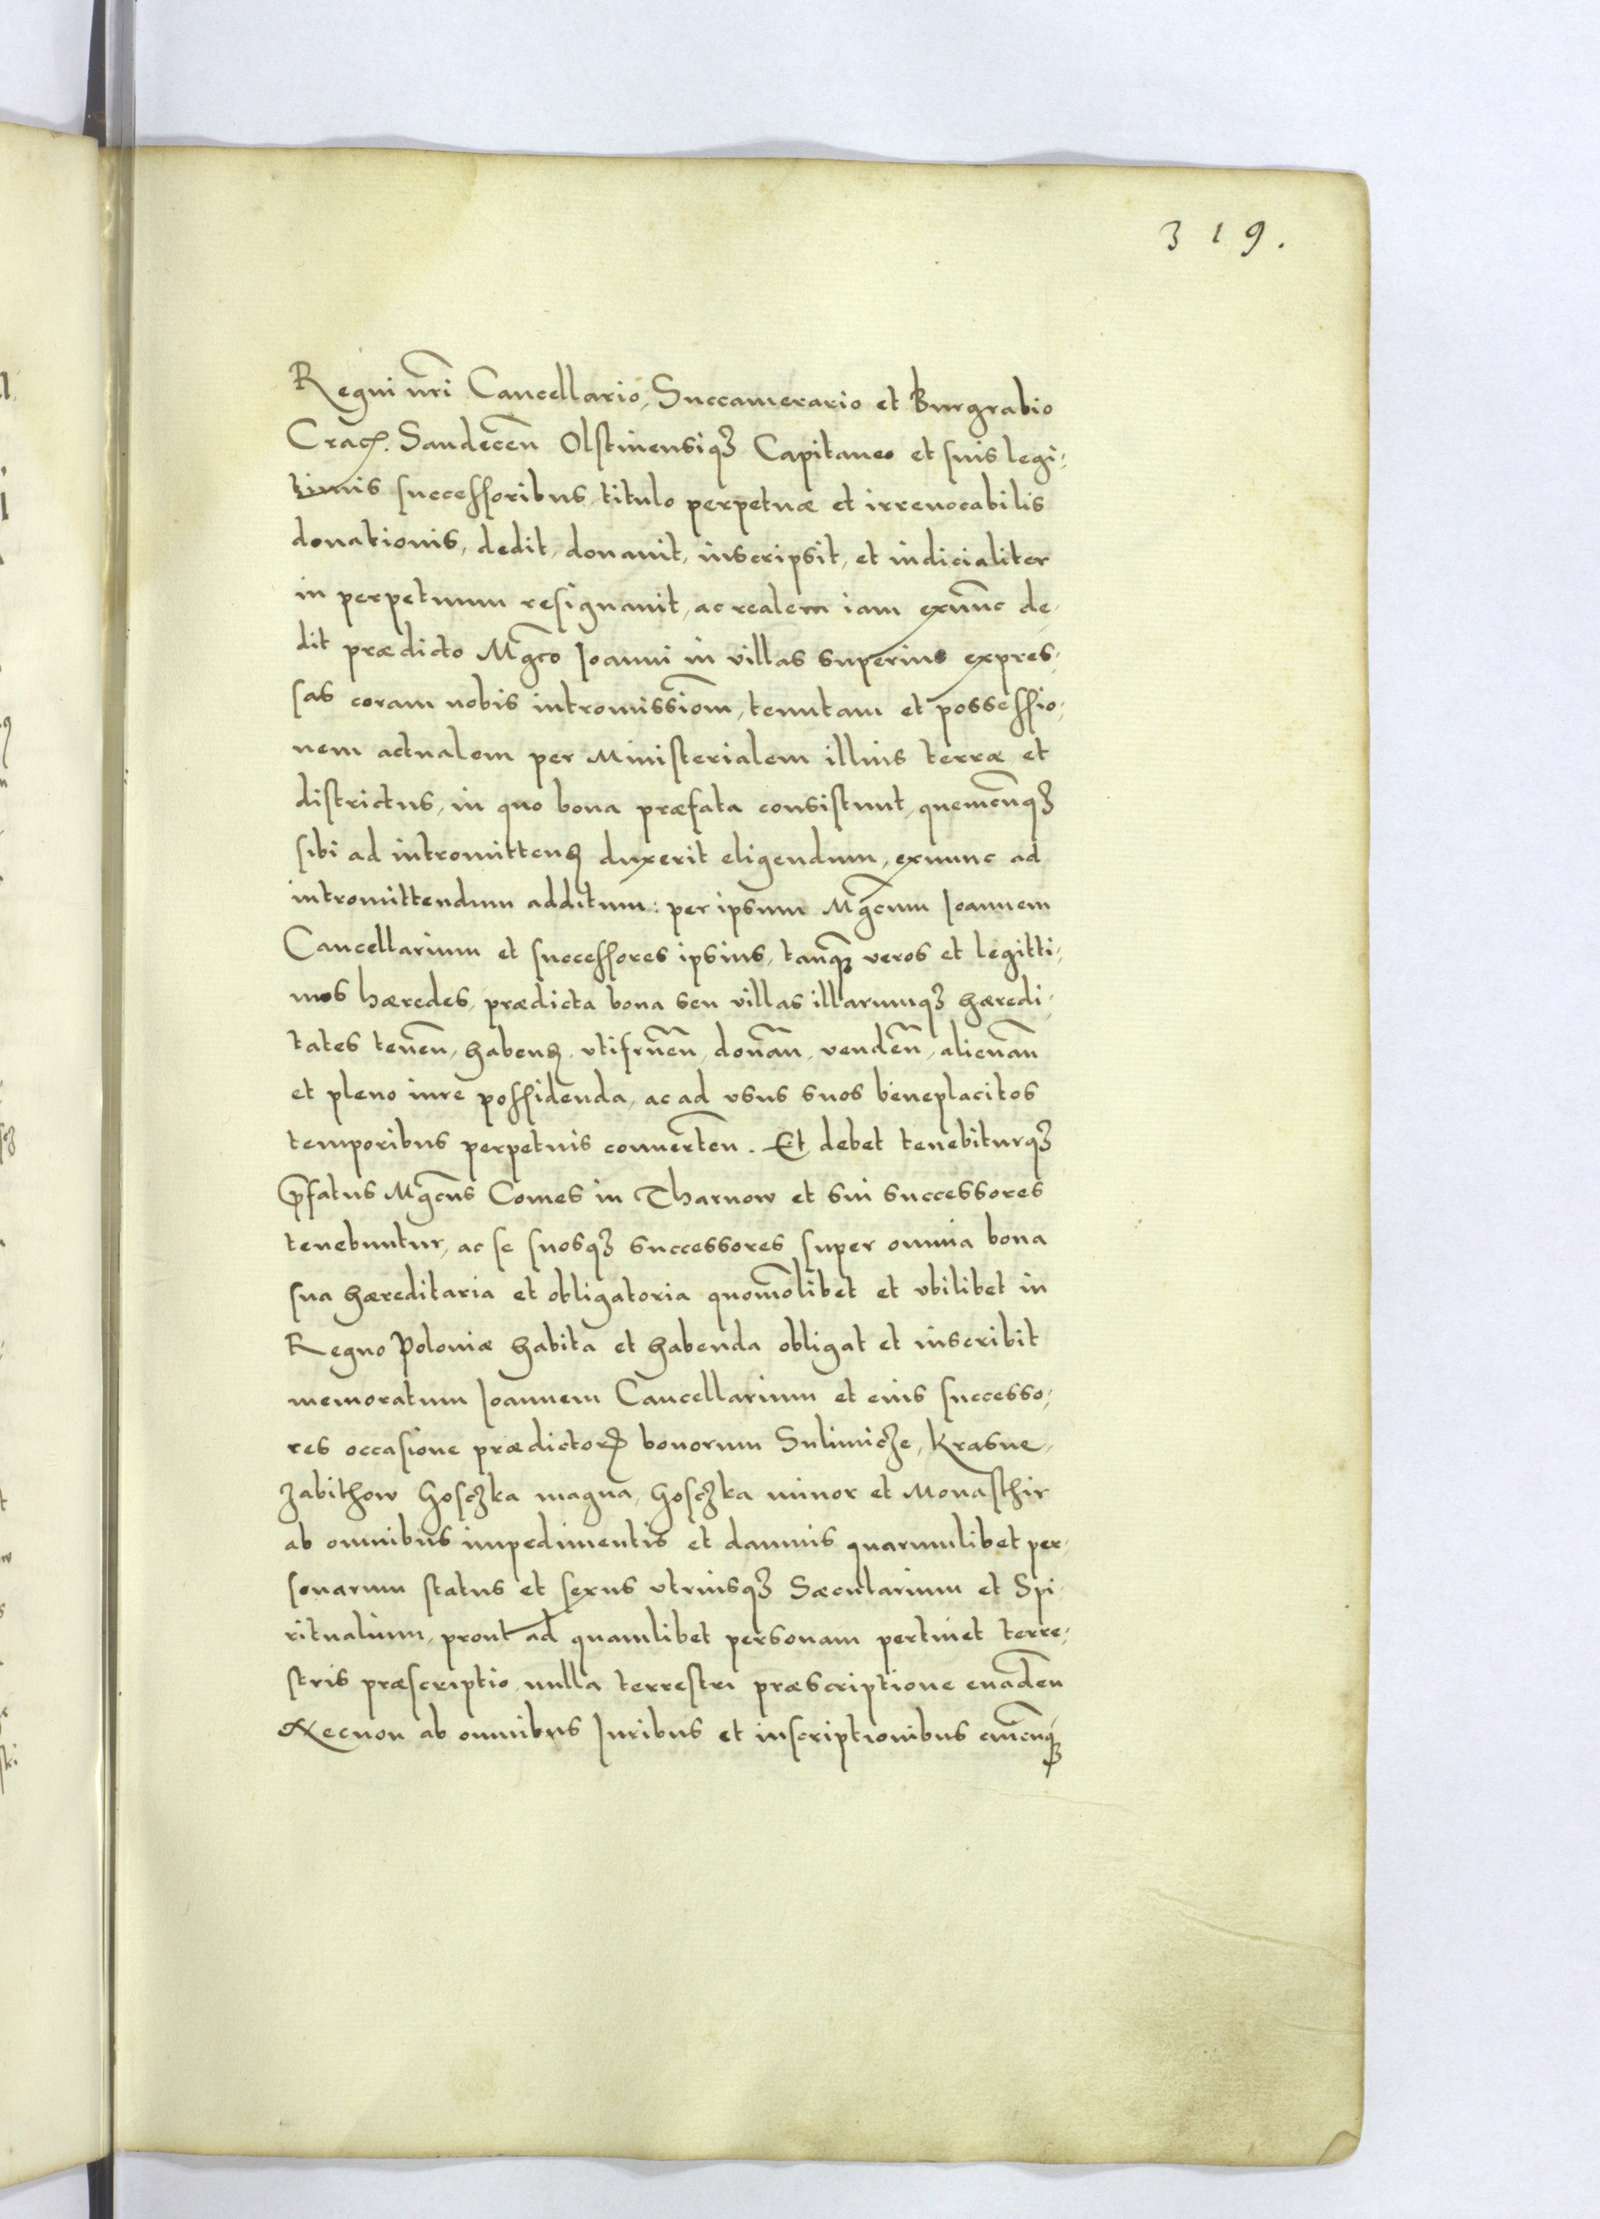 319.
Regni nr̃i Cancellario, Succamerario et Burgrabio
Cracȝ. Sandeceñ Olstinensiqȝ Capitaneo et suis legi,
timis successoribus titulo perpetuæ et irreuocabilis
donationis, dedit, donauit, inscripsit, et iudicialiter
in perpetuum resignauit, ac realem iam exnũnc de,
dit prædicto Mgc̃o Joanni in villas superius expres,
sas coram nobis intromissiom̃, tenutam et possessio,
nem actualem per Ministerialem illius terræ et
districtus, in quo bona præfata consistunt, quemcũnqȝ
sibi ad intromittenȝ duxerit eligendum, exnunc ad
intromittendum additum: per ipsum Mgc̃um Joannem
Cancellarium et successores ipsius, tanq̃ȝ veros et legitti,
mos hæredes, prædicta bona seu villas illarumqȝ hæredi,
tates teneñ, habenȝ. vtifrueñ, donañ, vendeñ, alienañ
et pleno iure possidenda, ac ad vsus suos beneplacitos
temporibus perpetuis conuerteñ. Et debet tenebiturqȝ
p̃fatus Mgc̃us Comes in Tharnow et sui successores
tenebuntur, ac se suosqȝ successores super omnia bona
sua hæreditaria et obligatoria quomõlibet et vbilibet in
Regno Poloniæ habita et habenda obligat et inscribit
memoratum Joannem Cancellarium et eius successo,
res occasione prædictorꝝ bonorum Sulimicze, Krasne,
Zabithow Gosczka magna, Gosczka minor et Monasthir
ab omnibus impedimentis et damnis quarumlibet per,
sonarum status et sexus vtriusqȝ Sæcularium et Spi,
ritualium, prout ad quamlibet personam pertinet terre,
stris præscriptio nulla terrestri præscriptione euadeñ
Necnon ab omnibus Juribus et inscriptionibus cuic̃unqȝ